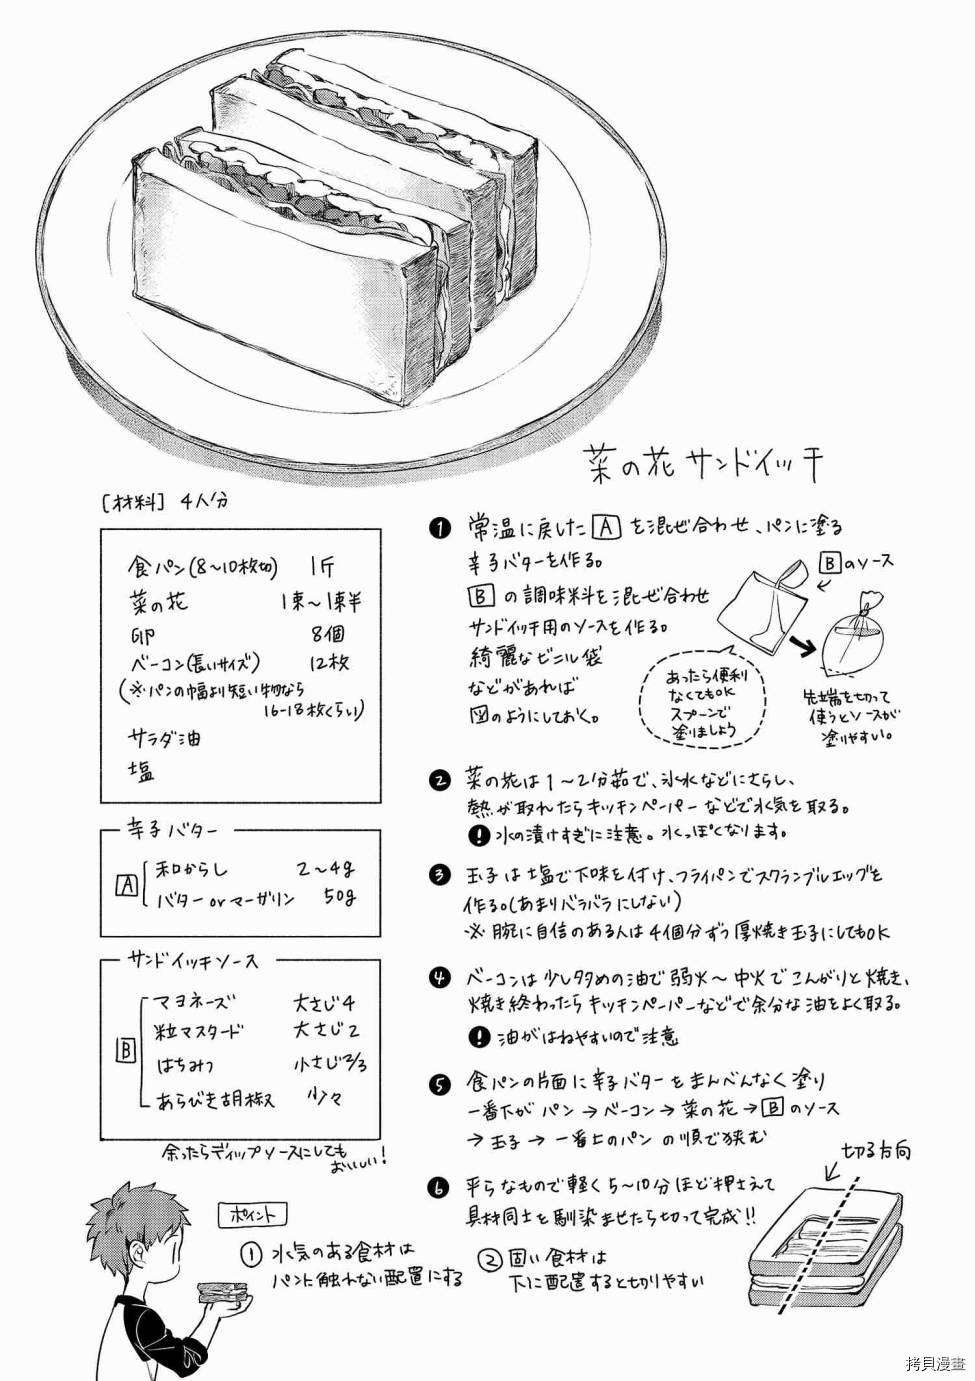 菜の花サンドイッチ
[材料] 4人分
食パン(8〜10枚切) 1斤
菜の花 1束〜1束半
卵 8個
ベーコン(長いサイズ) 12枚
(※パンの幅より短い物なら
16-18枚くらい)
サラダ油
塩
辛子バター
A
和からし 2〜4g
バターorマーガリン 50g
サンドイッチソース
B
マヨネーズ 大さじ4
粒マスタード 大さじ2
はちみつ 小さじ2/3
あらびき胡椒 少々
余ったらディップソースにしても
おいしい!
❶ 常温に戻した A を混ぜ合わせ、パンに塗る
辛子バターを作る。
B の調味料を混ぜ合わせ
サンドイッチ用のソースを作る。
綺麗なビニル袋
などがあれば
図のようにしておく。
Bのソース
あったら便利
なくてもOK
スプーンで
塗りましょう
先端を切って
使うとソースが
塗りやすい。
❷ 菜の花は1〜2分茹で、氷水などにさらし、
熱が取れたらキッチンペーパーなどで水気を取る。
! 水の漬けすぎに注意。水っぽくなります。
❸ 玉子は塩で下味を付け、フライパンでスクランブルエッグを
作る。(あまりバラバラにしない)
※腕に自信のある人は4個分ずつ厚焼き玉子にしてもOK
❹ ベーコンは少し多めの油で弱火〜中火でこんがりと焼き、
焼き終わったらキッチンペーパーなどで余分な油をよく取る。
! 油がはねやすいので注意
❺ 食パンの片面に辛子バターをまんべんなく塗り
一番下がパン→ベーコン→菜の花→Bのソース
→玉子→一番上のパンの順で挟む
❻ 平らなもので軽く5〜10分ほど押さえて
具材同士を馴染ませたら切って完成!!
切る方向
ポイント
① 水気のある食材は
パンに触れない配置にする
② 固い食材は
下に配置すると切りやすい
拷貝漫畫